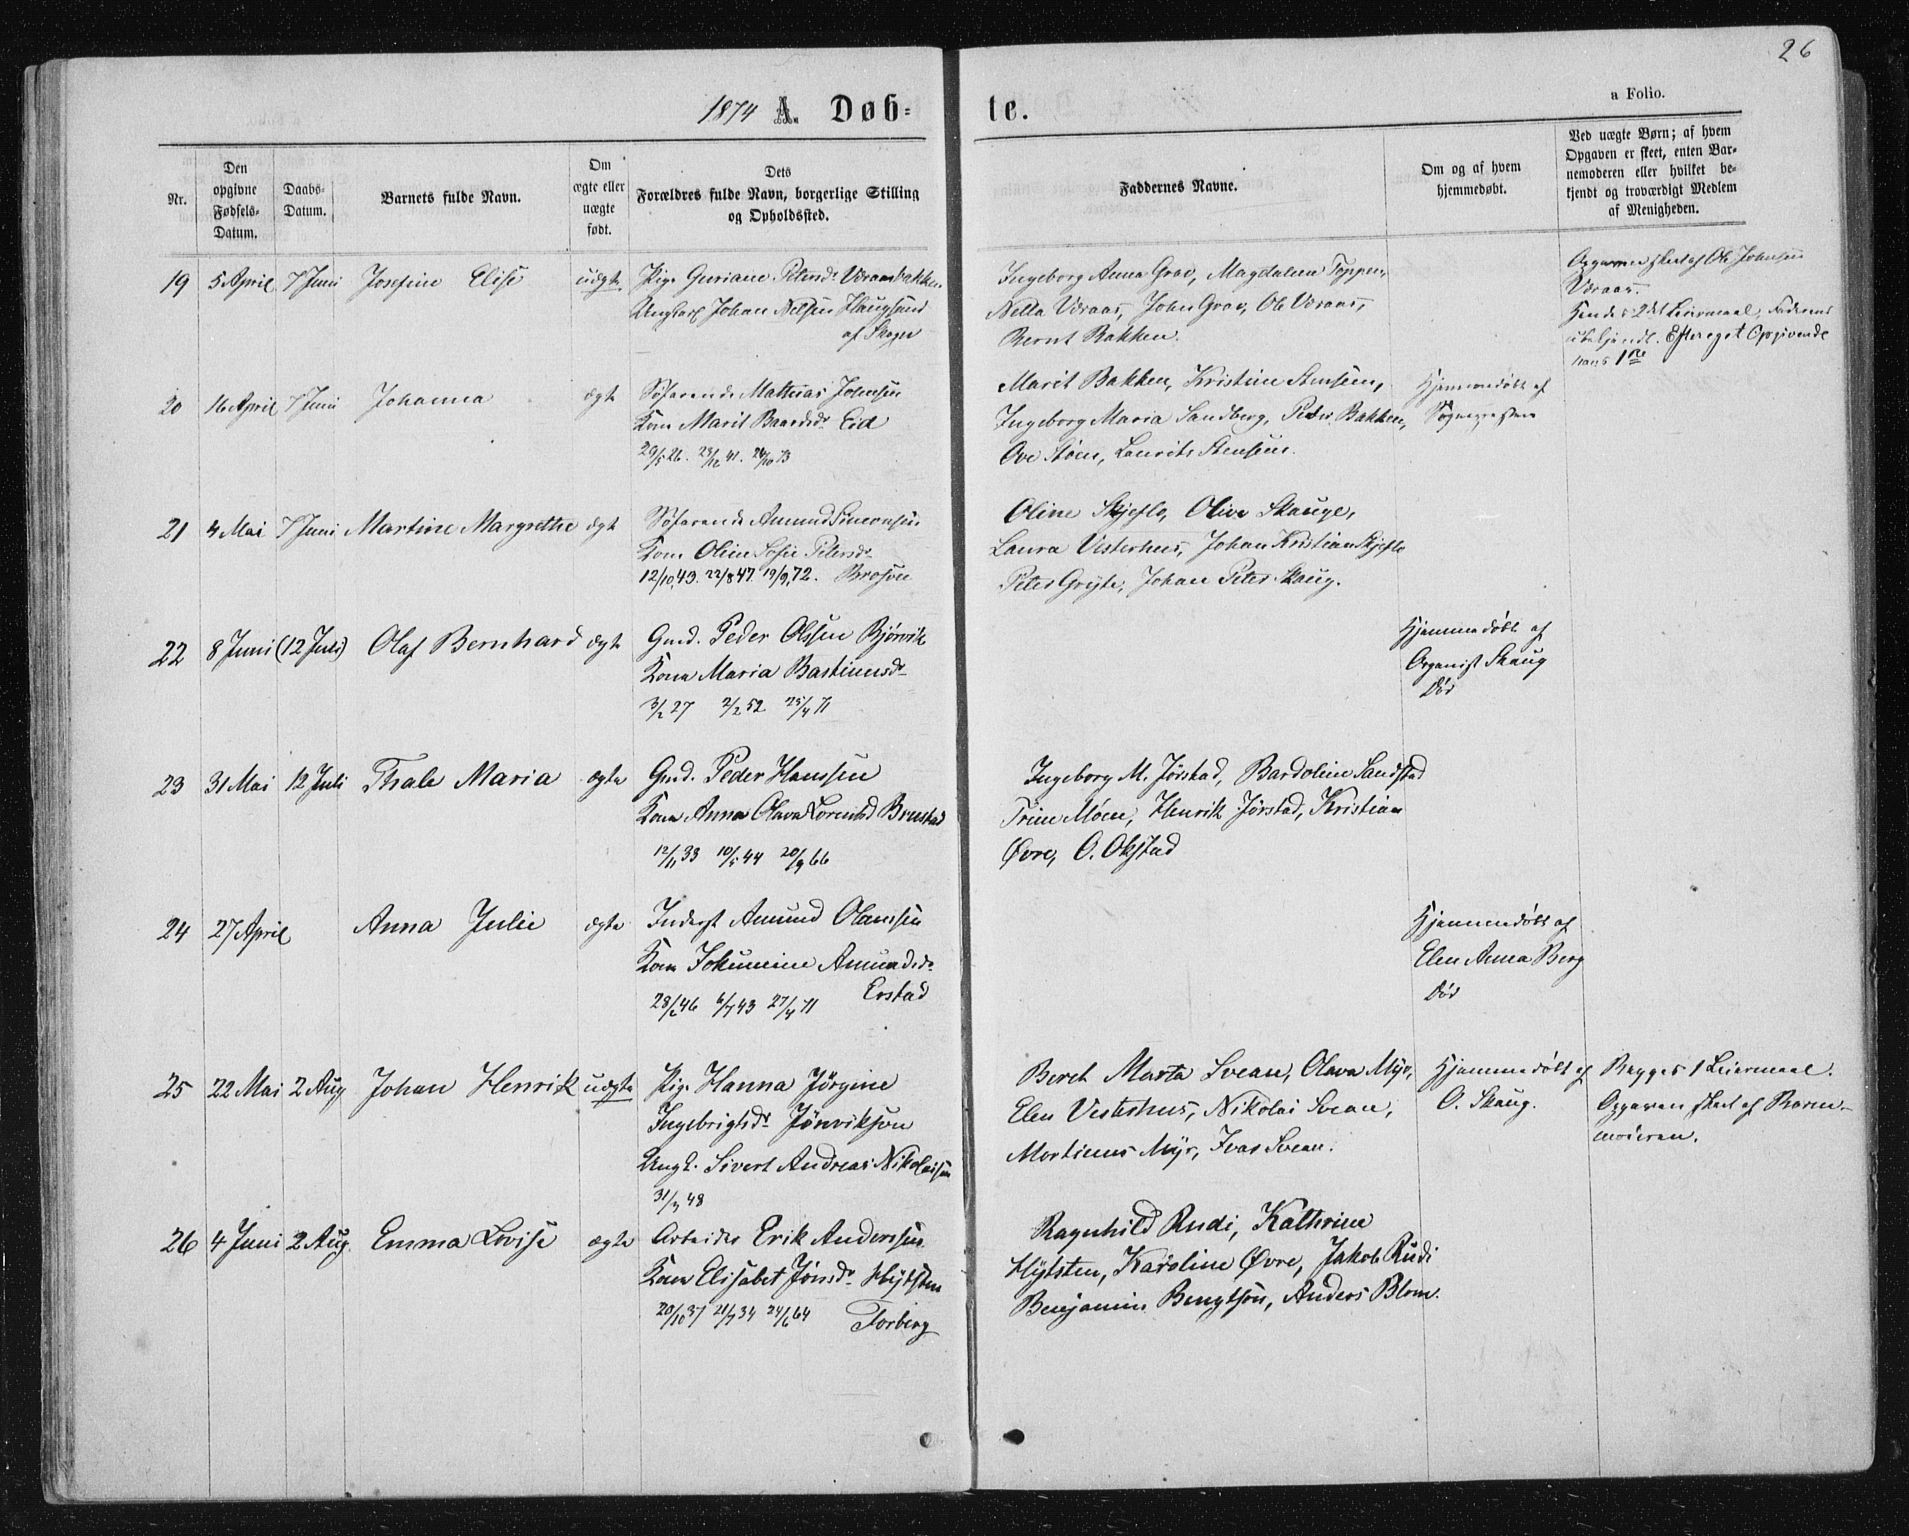 26
1874 A. Døb-
te.
a Folio.
Nr.
Den opgivne Fødsels-Datum.
Daabs-Datum.
Barnets fulde Navn.
Om ægte eller uægte født.
Dets Forældres fulde Navn, borgerlige Stilling og Opholdssted.
Faddernes Navne.
Om og af hvem hjemmedøbt.
Ved uægte Børn; af hvem Opgaven er skeet, enten Barnemoderen eller hvilket bekjendt og troværdigt Medlem af Menigheden.
19 5 April 7 Juni Josefine Elise uægte
Pige Guriane Petersdr Vdraasbakken
Ungkarl Johan Nelsen Haugsund
af Skogn
Ingeborg Anna Grav, Magdalena Toppen,
Nella Vdraas, John Grav, Ole Vdraas,
Bernt Bakken.
Opgaven skeet af Ole Johnsen
Vdraas.
Hendes 2det Leiermaal, Faderens
ubekjendt. Efter eget Opgivende
hans 1ste
20 16 April 7 Juni Johanna ægte
Søfarende Mathias Johnsen
Kone Marit Baardsdr Eid
29/5 26. 23/12 41. 24/10 73
Marit Bakken, Kristine Stensen,
Ingeborg Maria Sandberg, Peter Bakken,
Ove Støen, Laurits Stensen.
Hjemmedøbt af
Sognepresten
21 4 Mai 7 Juni Martine Margrethe ægte
Søfarende Amund Simonsen
Kone Oline Sofie Petersdr
12/10 49. 22/8 47. 19/9 72. Brosøen
Oline Skjeflo, Olive Skauge,
Laura Vesterhus, Johan Kristian Skjeflo
Peter Grejte, Johan Peter Skaug.
22 8 Juni (12 Juli) Olaf Bernhard ægte
Gmd. Peder Olssen Bjørvik
Kone Maria Bastiansdr
3/2 27 2/2 52 25/4 71
Hjemmedøbt af
Organist Skaug
Død
23 31 Mai 12 Juli Thale Maria ægte
Gmd. Peder Hanssen
Kone Anna Olava Lorentsd Brustad
12/11 33 10/5 44 20/9 66
Ingeborg M. Jørstad, Bardoline Sandstad
Trine Moen, Henrik Jørstad, Kristian
Øvre, O. Okstad
24 27 April Anna Julie ægte
Inderst Amund Olaussen
Kone Jokumine Amundsdr
28/2 46 6/7 43 27/4 71 Erstad
Hjemmedøbt af
Elen Anna Berg
Død
25 22 Mai 2 Aug Johan Henrik uægte
Pige Hanna Jørgine
Ingebrigtsdr Jønvikson
Ungk. Sivert Andreas Nikolaisen
31/3 48
Beret Marta Svean, Olava Myr,
Elen Vesterhus, Nikolai Svean,
Mortinus Myr, Ivar Svean.
Hjemmedøbt af
O. Skaug.
Begges 1 Leiermaal.
Opgaven skeet af Barne-
moderen.
26 4 Juni 2 Aug. Emma Lovise ægte
Arbeider Erik Anderssen
Kone Elisabet Jønsdr Hyjtsten
20/10 37 21/7 34 24/6 64 Forberg
Ragnhild Rudi, Kathrine
Hyjtsten, Karoline Øvre, Jakob Rudi
Benjamin Bengtson, Anders Blom.